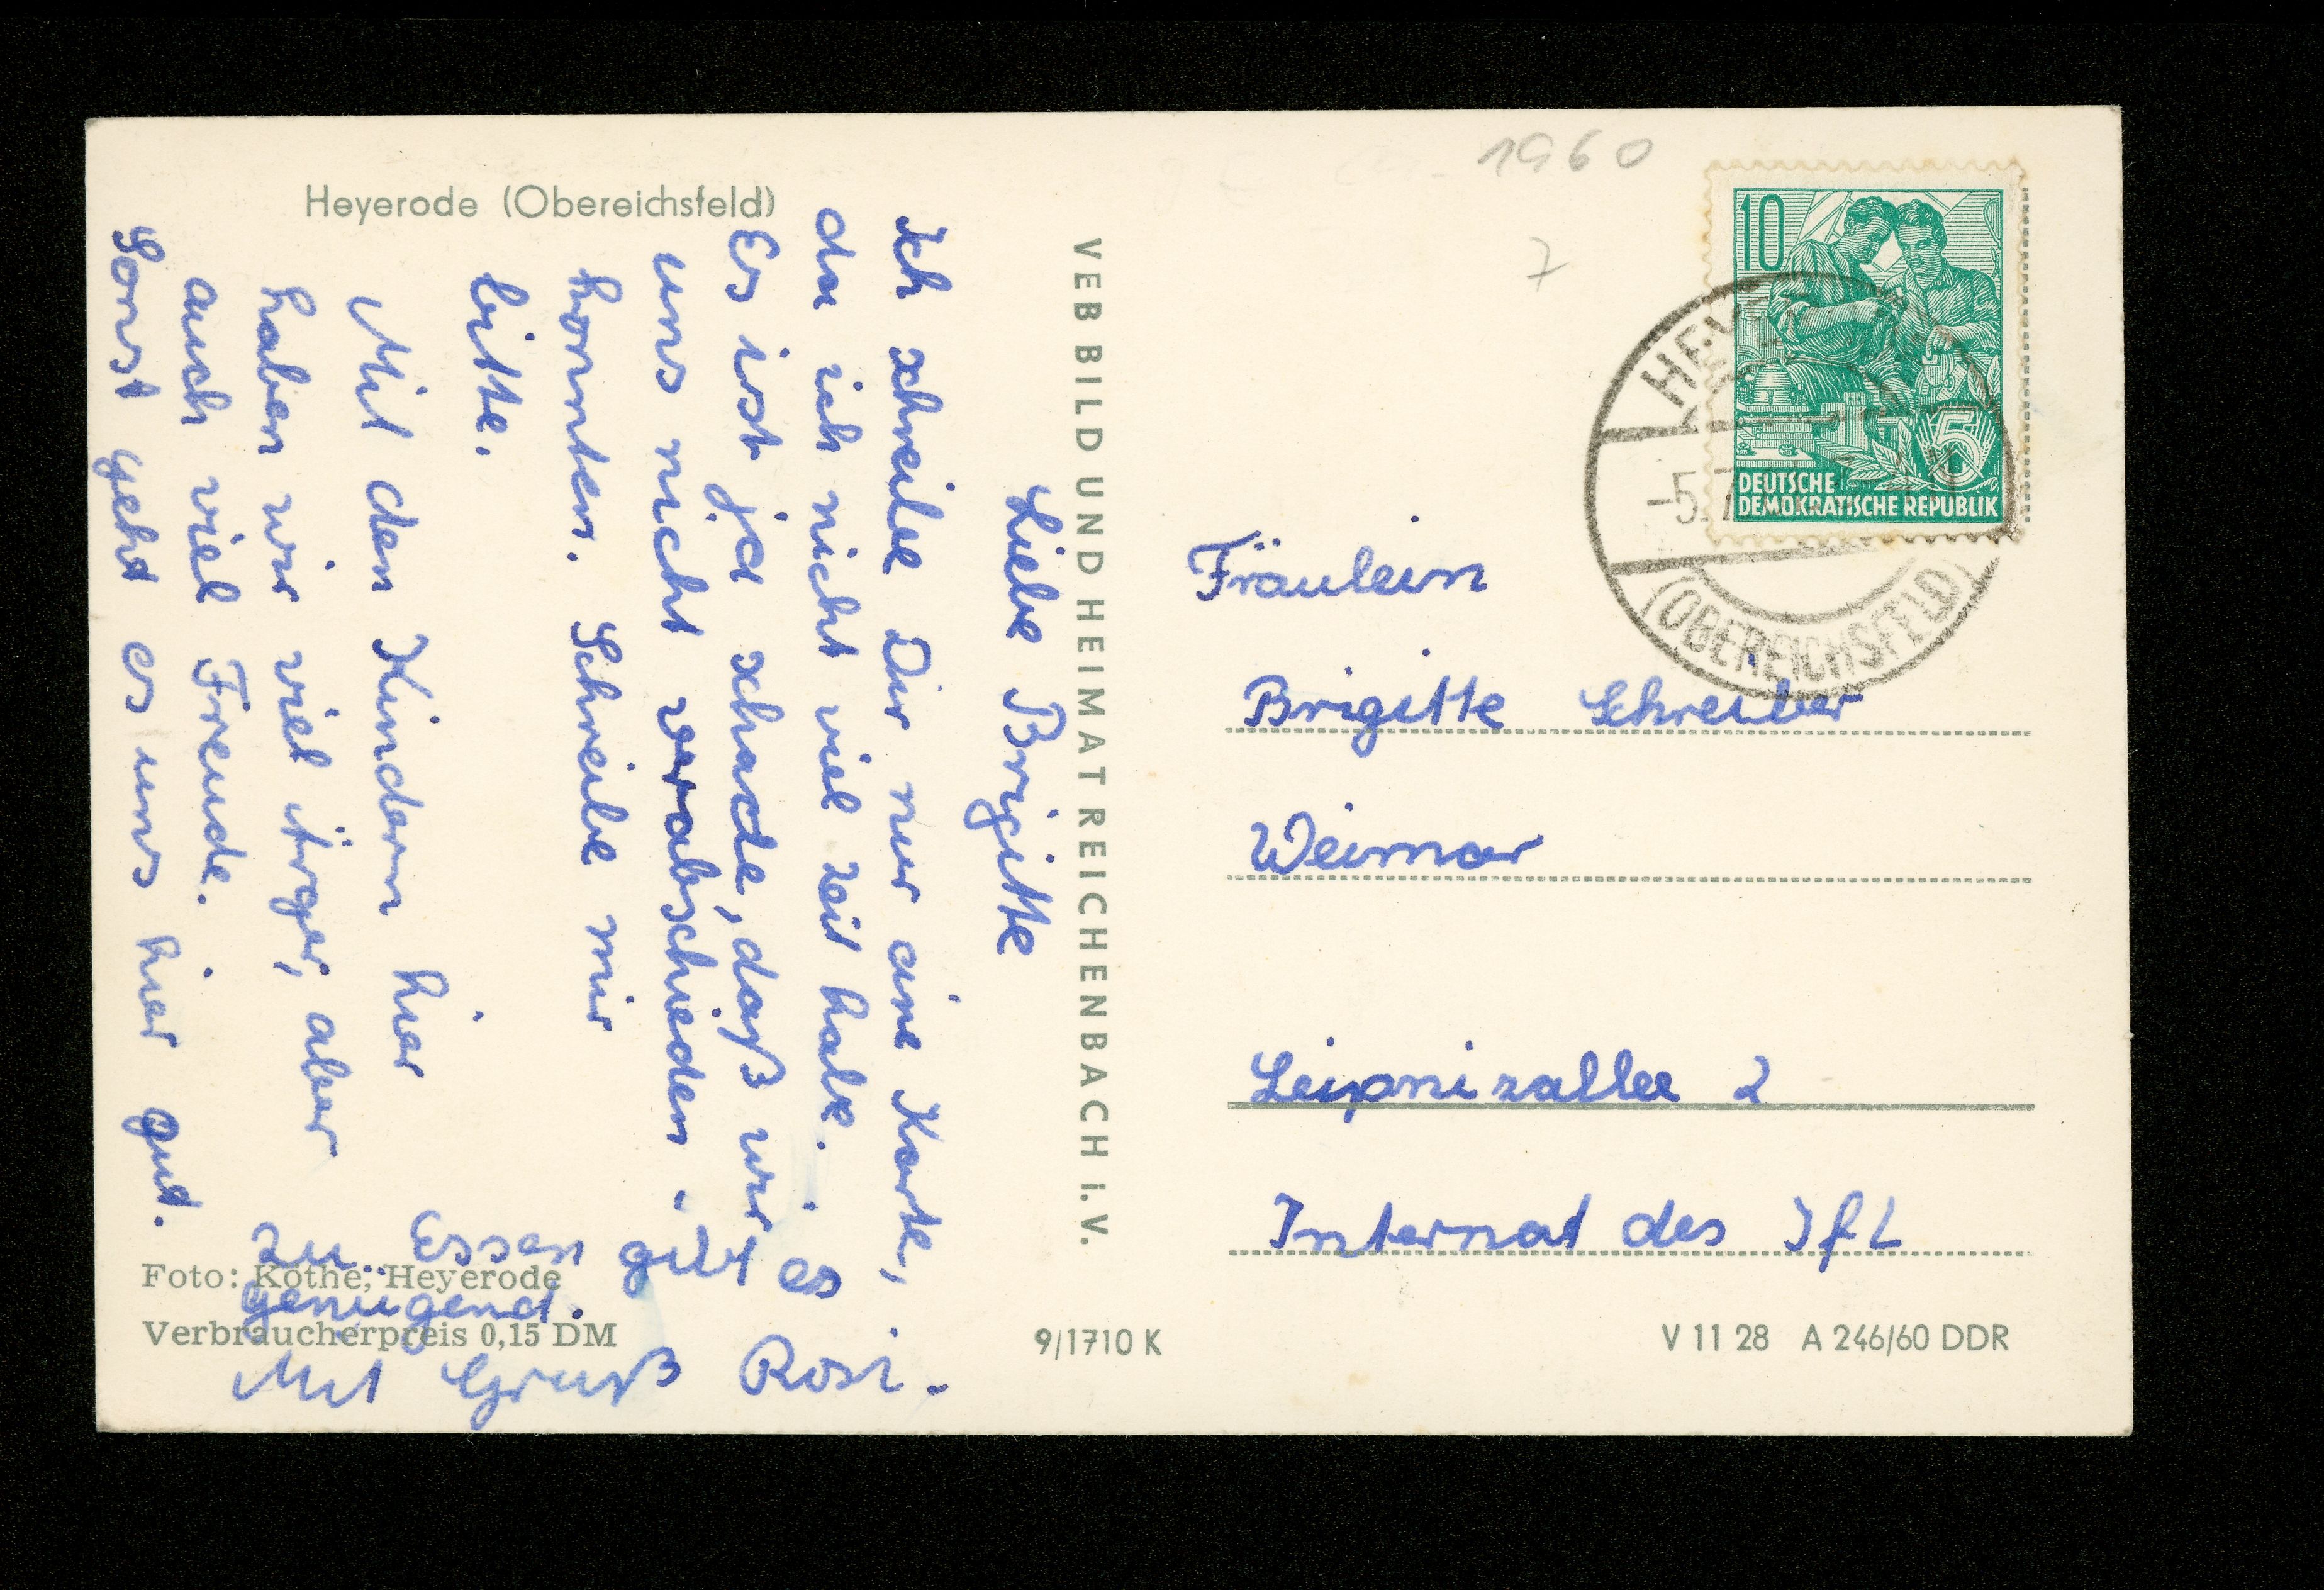 Heyerode (Obereichsfeld)
Liebe Brigitte
Ich schreibe Dir nur eine Karte,
da ich nicht viel Zeit habe.
Es ist ja schade, daß wir
uns nicht verabschieden
konnten. Schreibe mir
bitte.
Mit den Kindern hier
haben wir viel Ärger, aber
auch viel Freude.
Sonst geht es uns hier gut.
Zu Essen gibt es
genügend.
Mit Gruß Rosi.
Foto: Köthe, Heyerode
Verbraucherpreis 0,15 DM
VEB BILD UND HEIMAT REICHENBACH i. V.
9/1710 K
1960
7
10
5
DEUTSCHE
DEMOKRATISCHE REPUBLIK
-5.7
(OBEREICHSFELD)
Fräulein
Brigitte Schreiber
Weimar
Leipnizallee 2
Internat des IfL
V 11 28 A 246/60 DDR